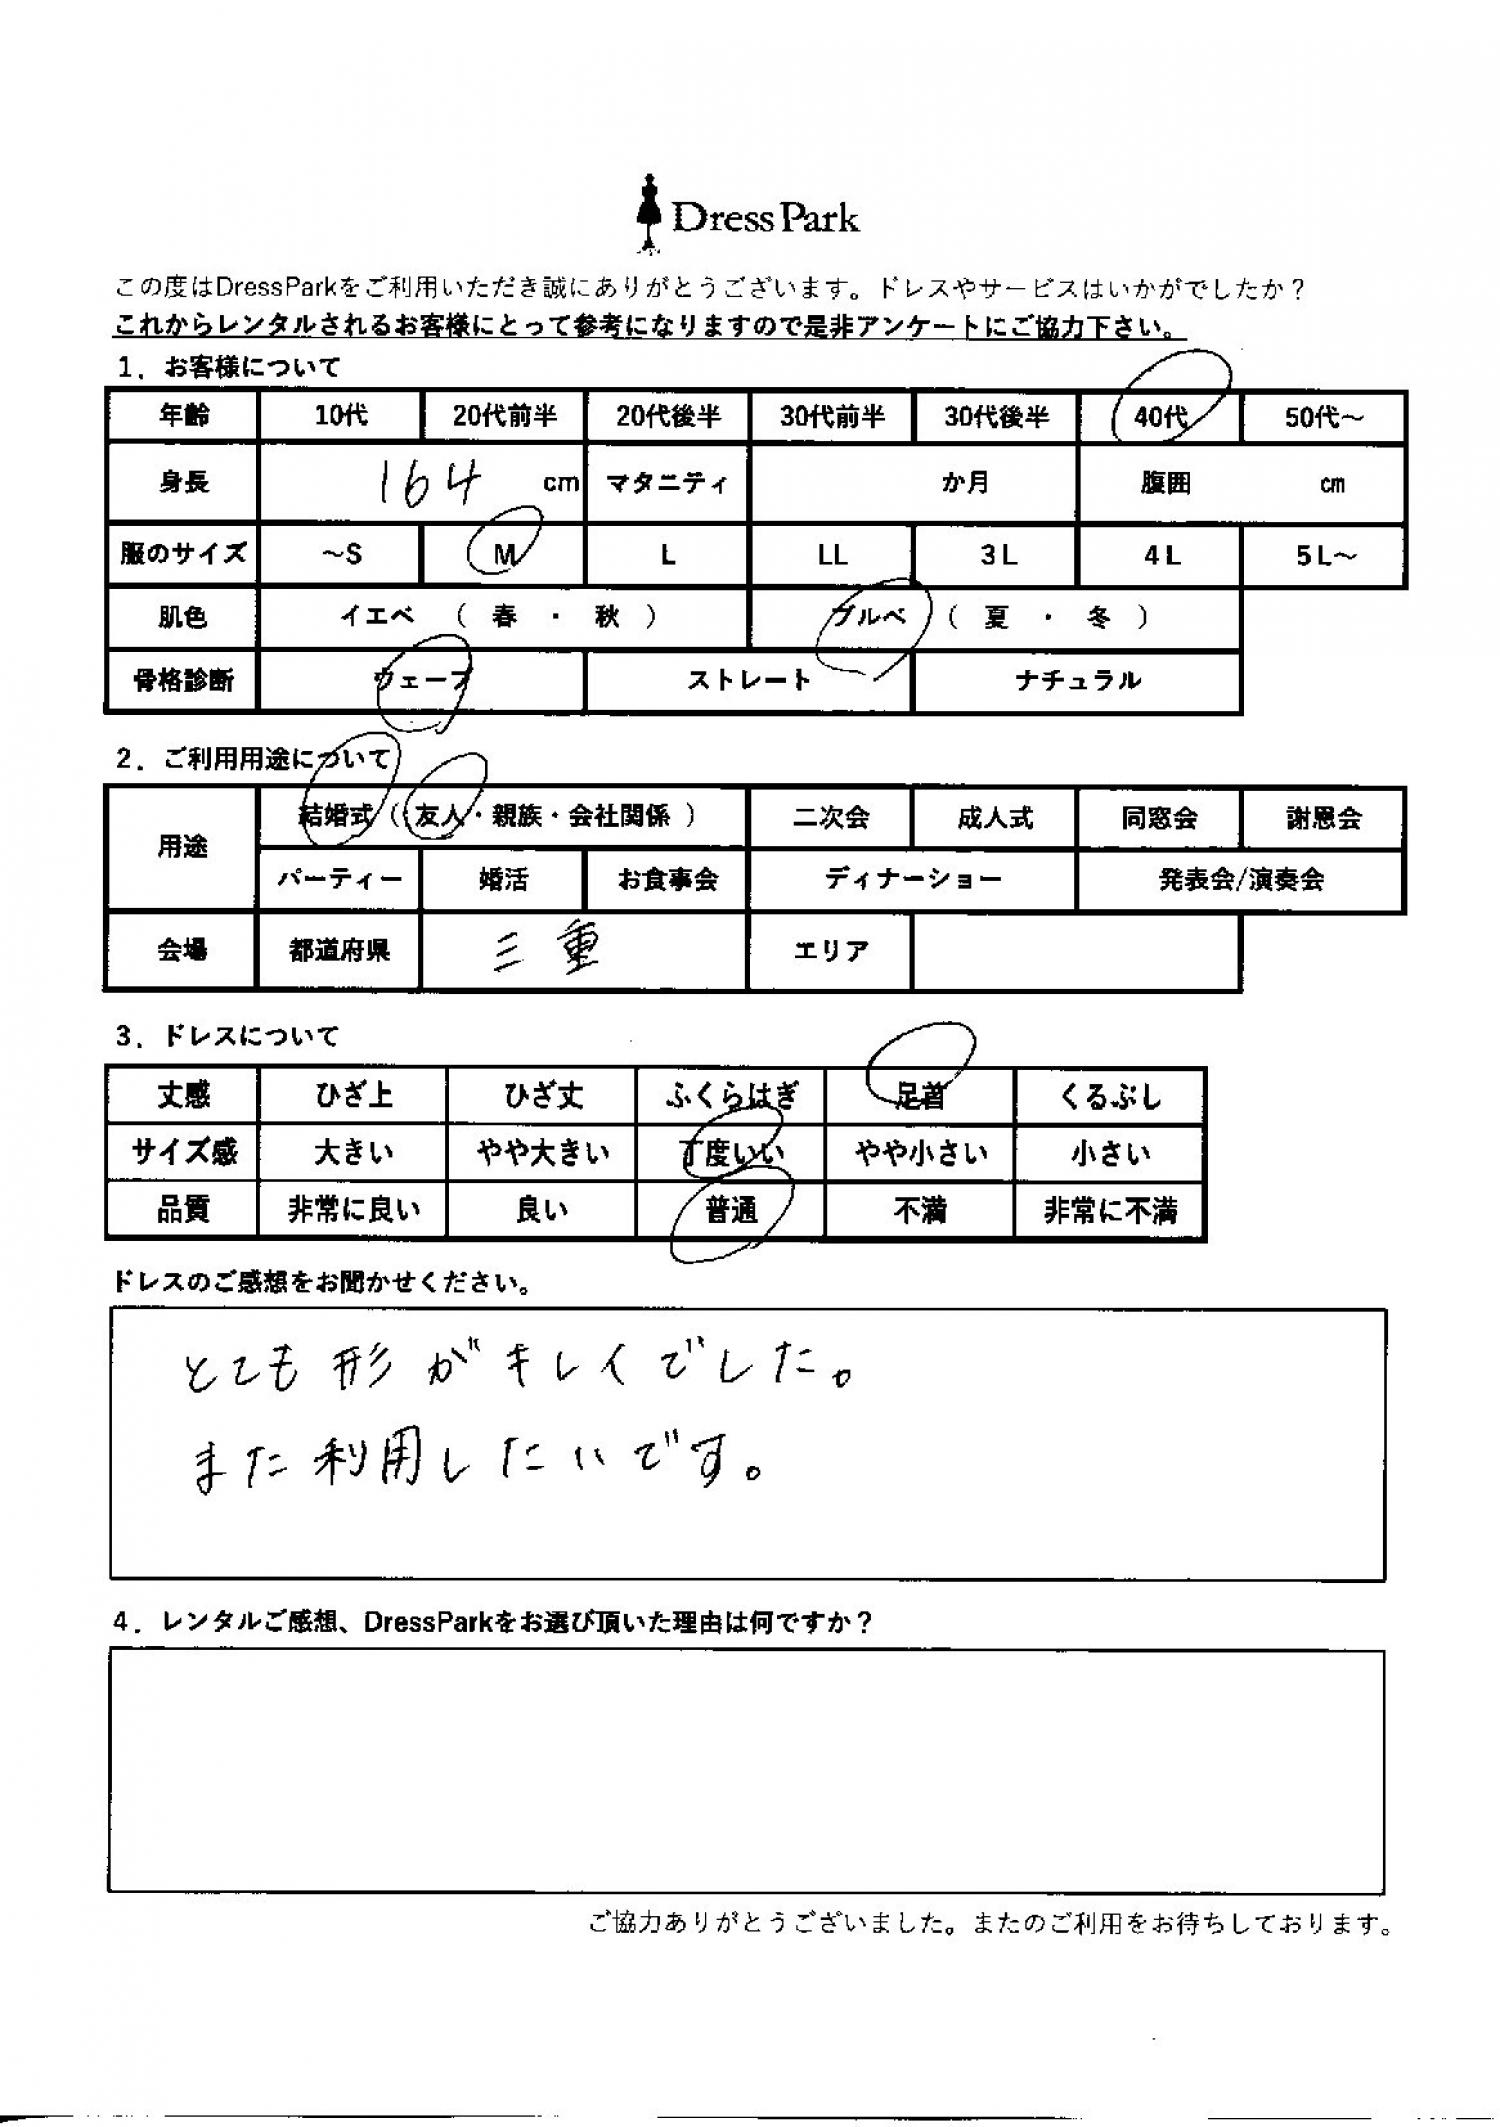 Dress Park
この度はDressParkをご利用いただき誠にありがとうございます。ドレスやサービスはいかがでしたか？
これからレンタルされるお客様にとって参考になりますので是非アンケートにご協力下さい。
1．お客様について
年齢 10代 20代前半 20代後半 30代前半 30代後半 40代 50代～
身長 164 cm マタニティ か月 腹囲 cm
服のサイズ ～S M L LL 3L 4L 5L～
肌色 イエベ （ 春 ・ 秋 ） ブルベ （ 夏 ・ 冬 ）
骨格診断 ウェーブ ストレート ナチュラル
2．ご利用用途について
用途 結婚式（友人・親族・会社関係） 二次会 成人式 同窓会 謝恩会
パーティー 婚活 お食事会 ディナーショー 発表会/演奏会
会場 都道府県 三重 エリア
3．ドレスについて
丈感 ひざ上 ひざ丈 ふくらはぎ 足首 くるぶし
サイズ感 大きい やや大きい 丁度いい やや小さい 小さい
品質 非常に良い 良い 普通 不満 非常に不満
ドレスのご感想をお聞かせください。
とても形がキレイでした。
また利用したいです。
4．レンタルご感想、DressParkをお選び頂いた理由は何ですか？
ご協力ありがとうございました。またのご利用をお待ちしております。